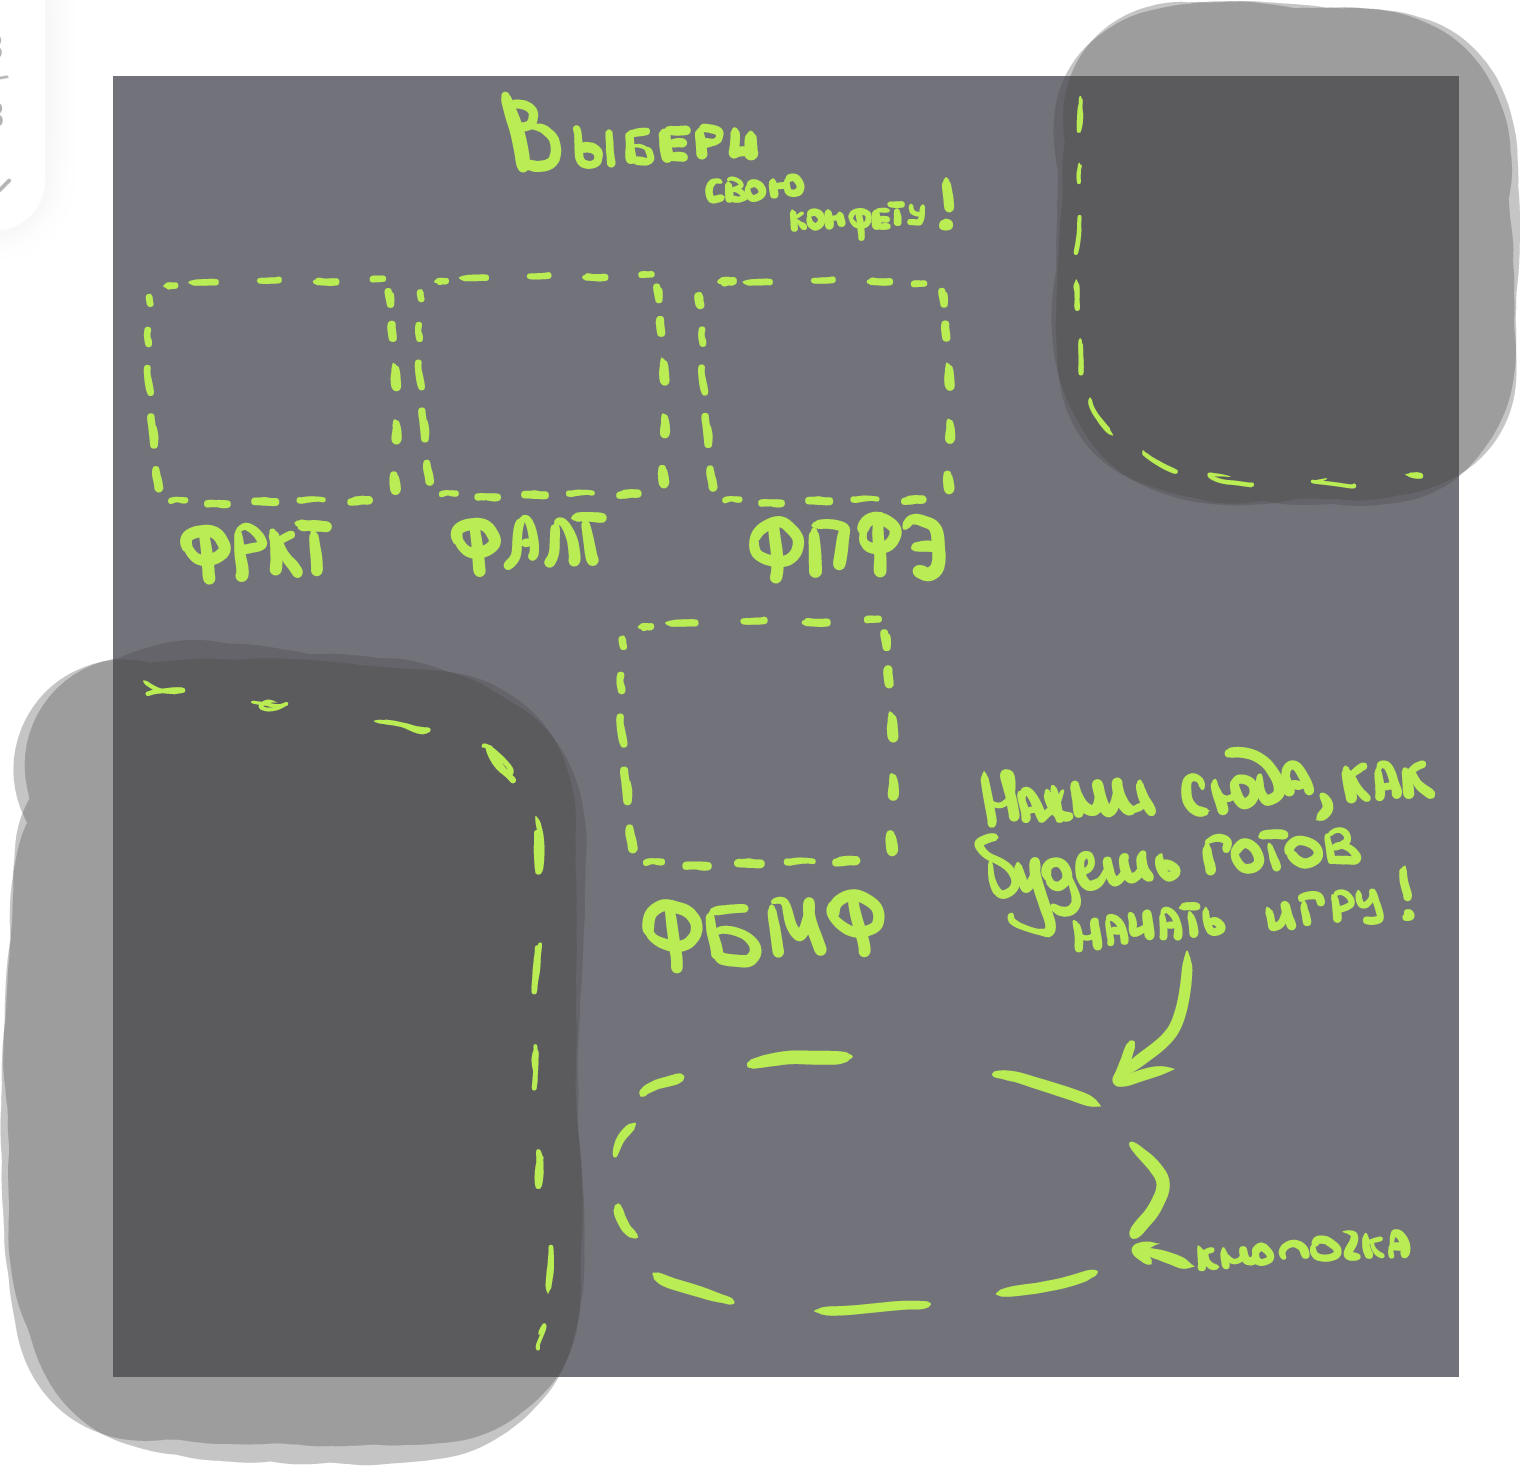 Выбери
свою
конфету!
ФРКТ ФАЛТ ФПФЭ
ФБМФ
Нажми сюда, как
будешь готов
начать игру!
кнопочка